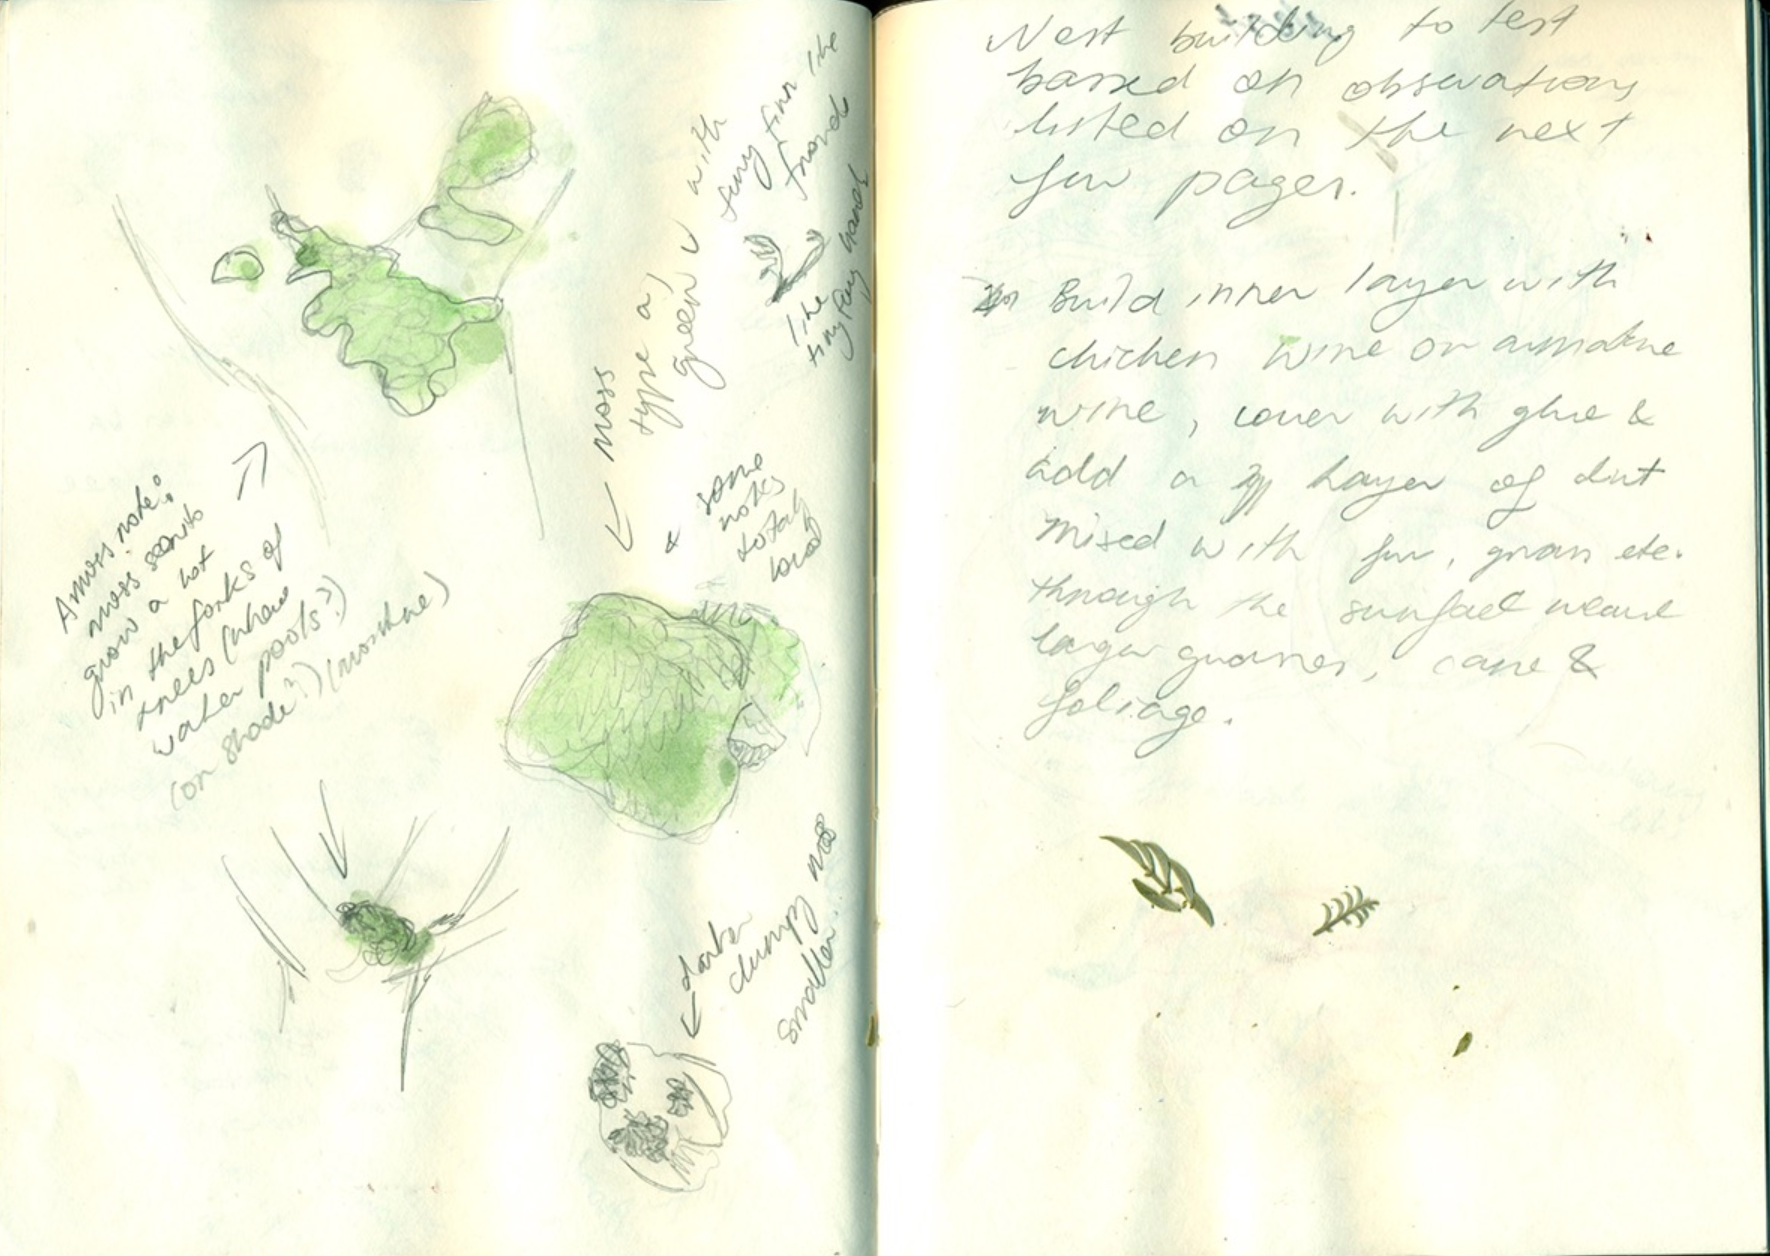 A moss note:
moss seems
grow a lot
in the forks of
trees (where
water pools?)
(or shade?) (moisture)
moss
type a)
green
with
tiny finn like
frond
like
tiny hands
&
some
rocks
totaly
darker
clumpy
smaller.
Nest building to test
based on observations
listed on the next
few pages.
Build inner layer with
chicken wire or armature
wire, cover with glue &
add a layer of dirt
mixed with fur, grass etc.
through the surface weave
larger grasses, cane &
foliage.